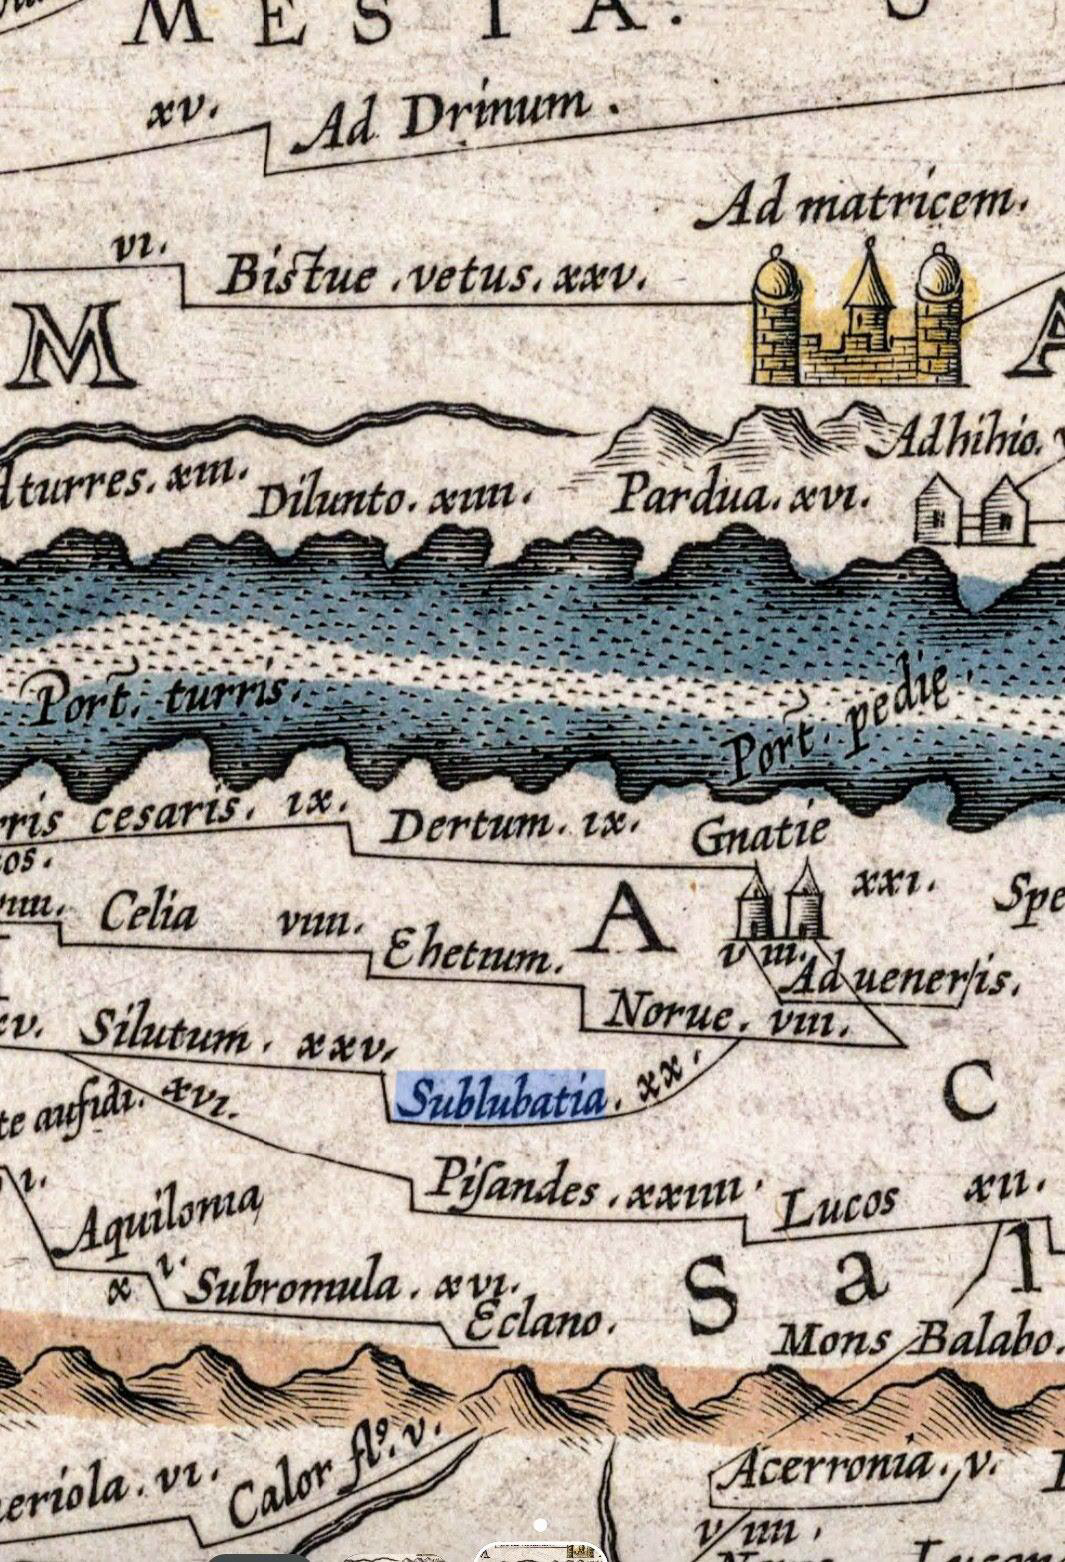 M E S I A.
xv. Ad Drinum.
Ad matricem.
vi. Bistue . vetus. xxv.
M A
Adhihio.
dturres. xiii. Dilunto. xiiii. Pardua. xvi.
Port̃. turris. Port̃. pedię.
rris cesaris. ix. Dertum. ix. Gnatie
os. xxi. Spe
Celia viiii. Ehetium. A
v iii. Ad ueneris.
xv. Silutum . xxv. Norue. viii.
Sublubatia. xx. C
te aufidi. xvi.
Pisandes . xxiiii. Lucos xii.
i. Aquilonia
x i. Subromula . xvi. S a l
Eclano. Mons Balabo.
eriola. vi. Calor fl°. v. Acerronia. v.
v iiii.